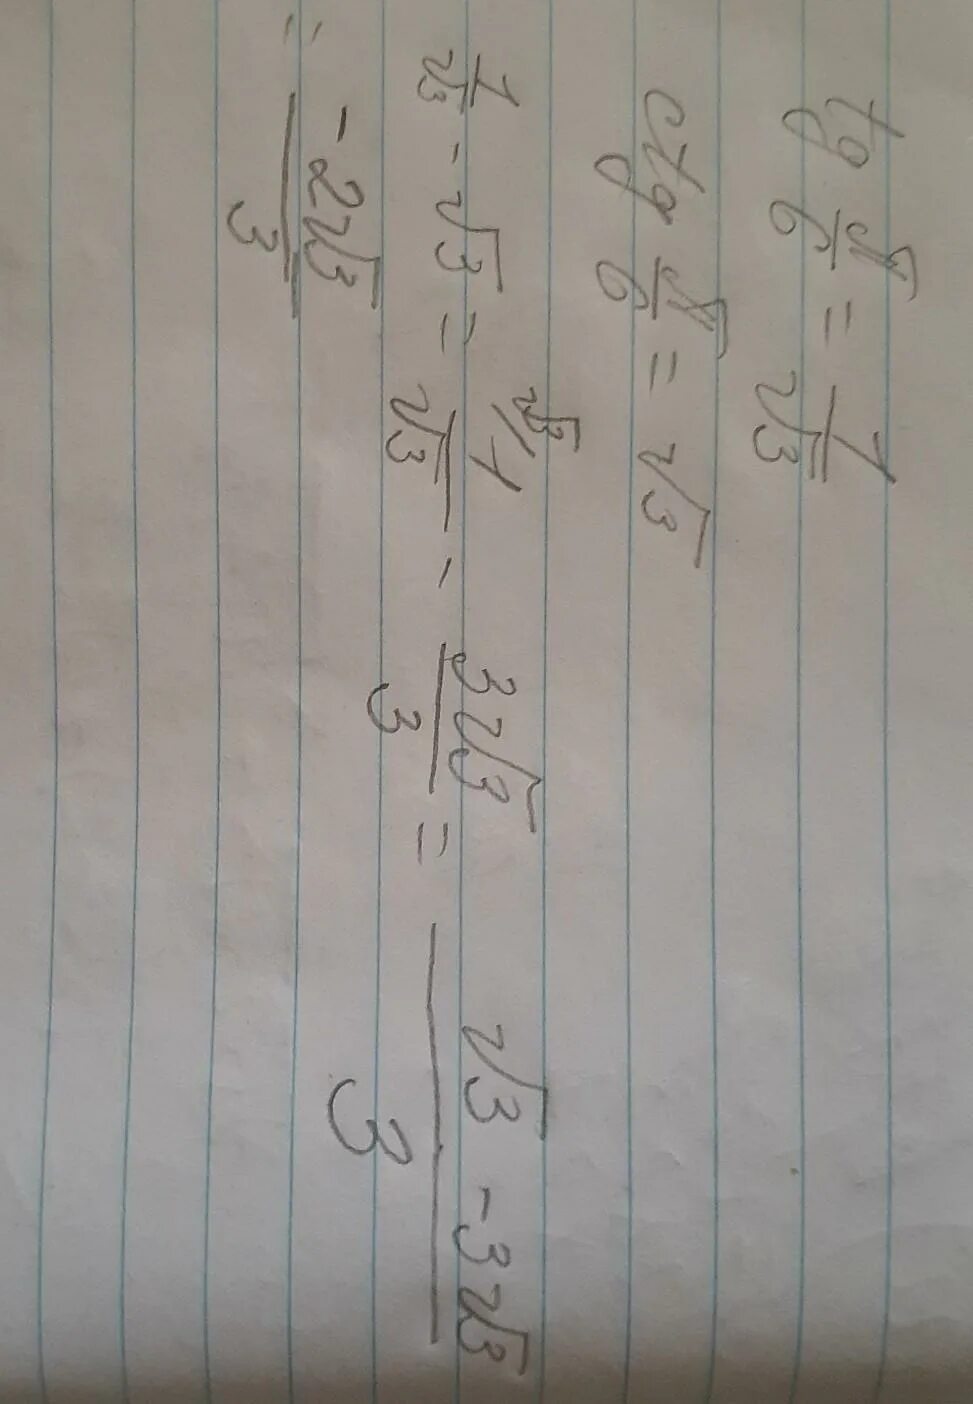 tg π/6 = 1/√3
ctg π/6 = √3
1/√3 - √3 = √3/ 1/√3 - 3√3/3 = √3 - 3√3/3
= -2√3/3